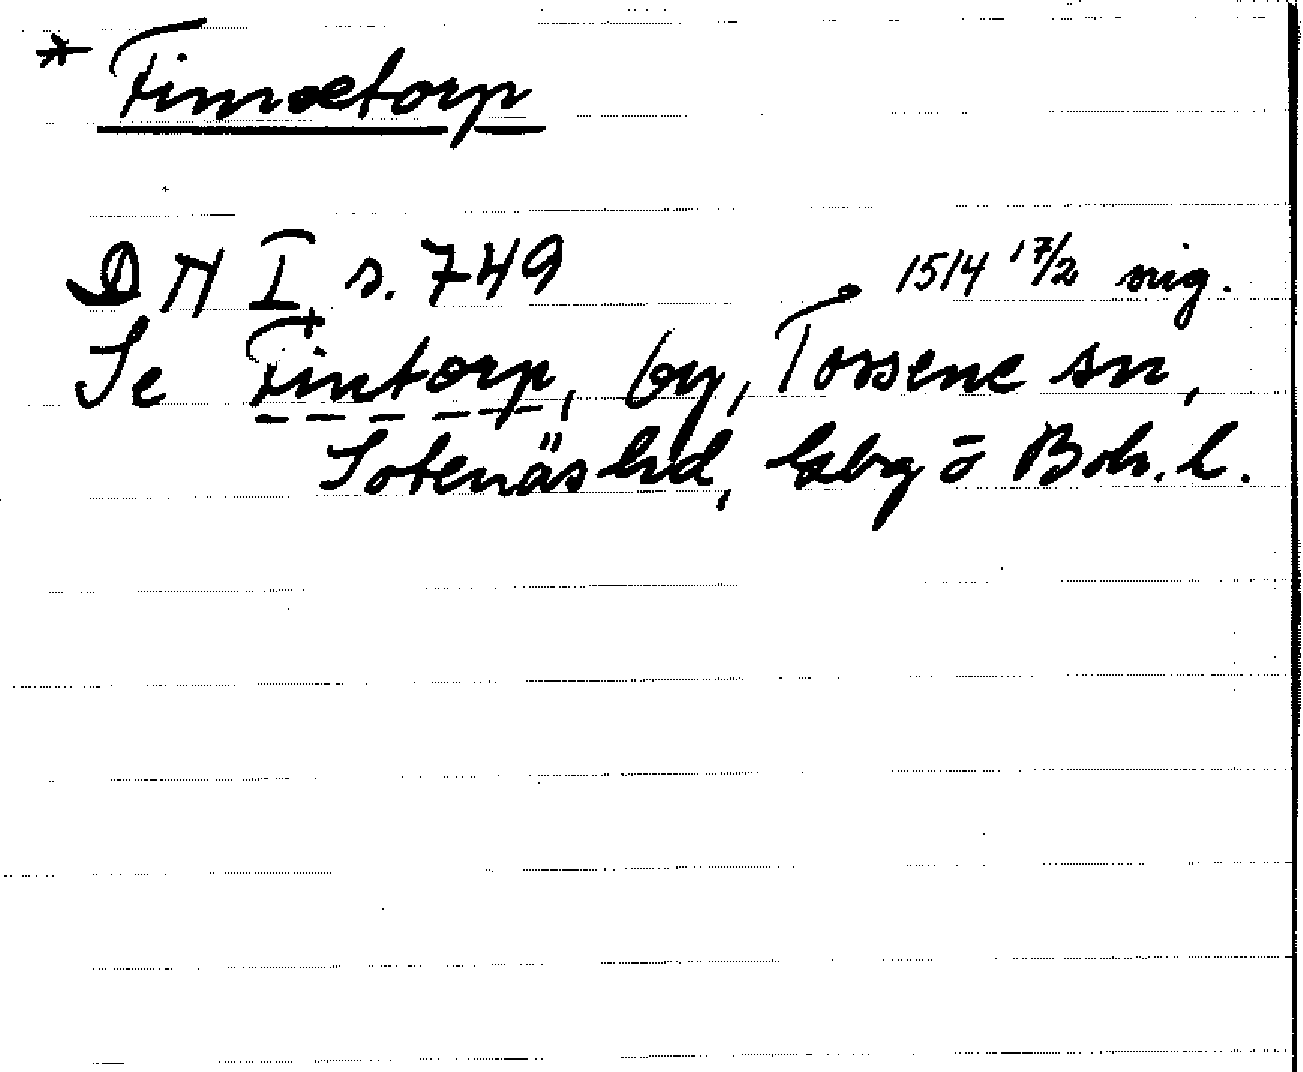 * Finnætorp
DN I s. 749 1514 17/2 sig.
Se Fintorp, by, Tossene sn,
Sotenäs hd, Gbg o Boh. l.